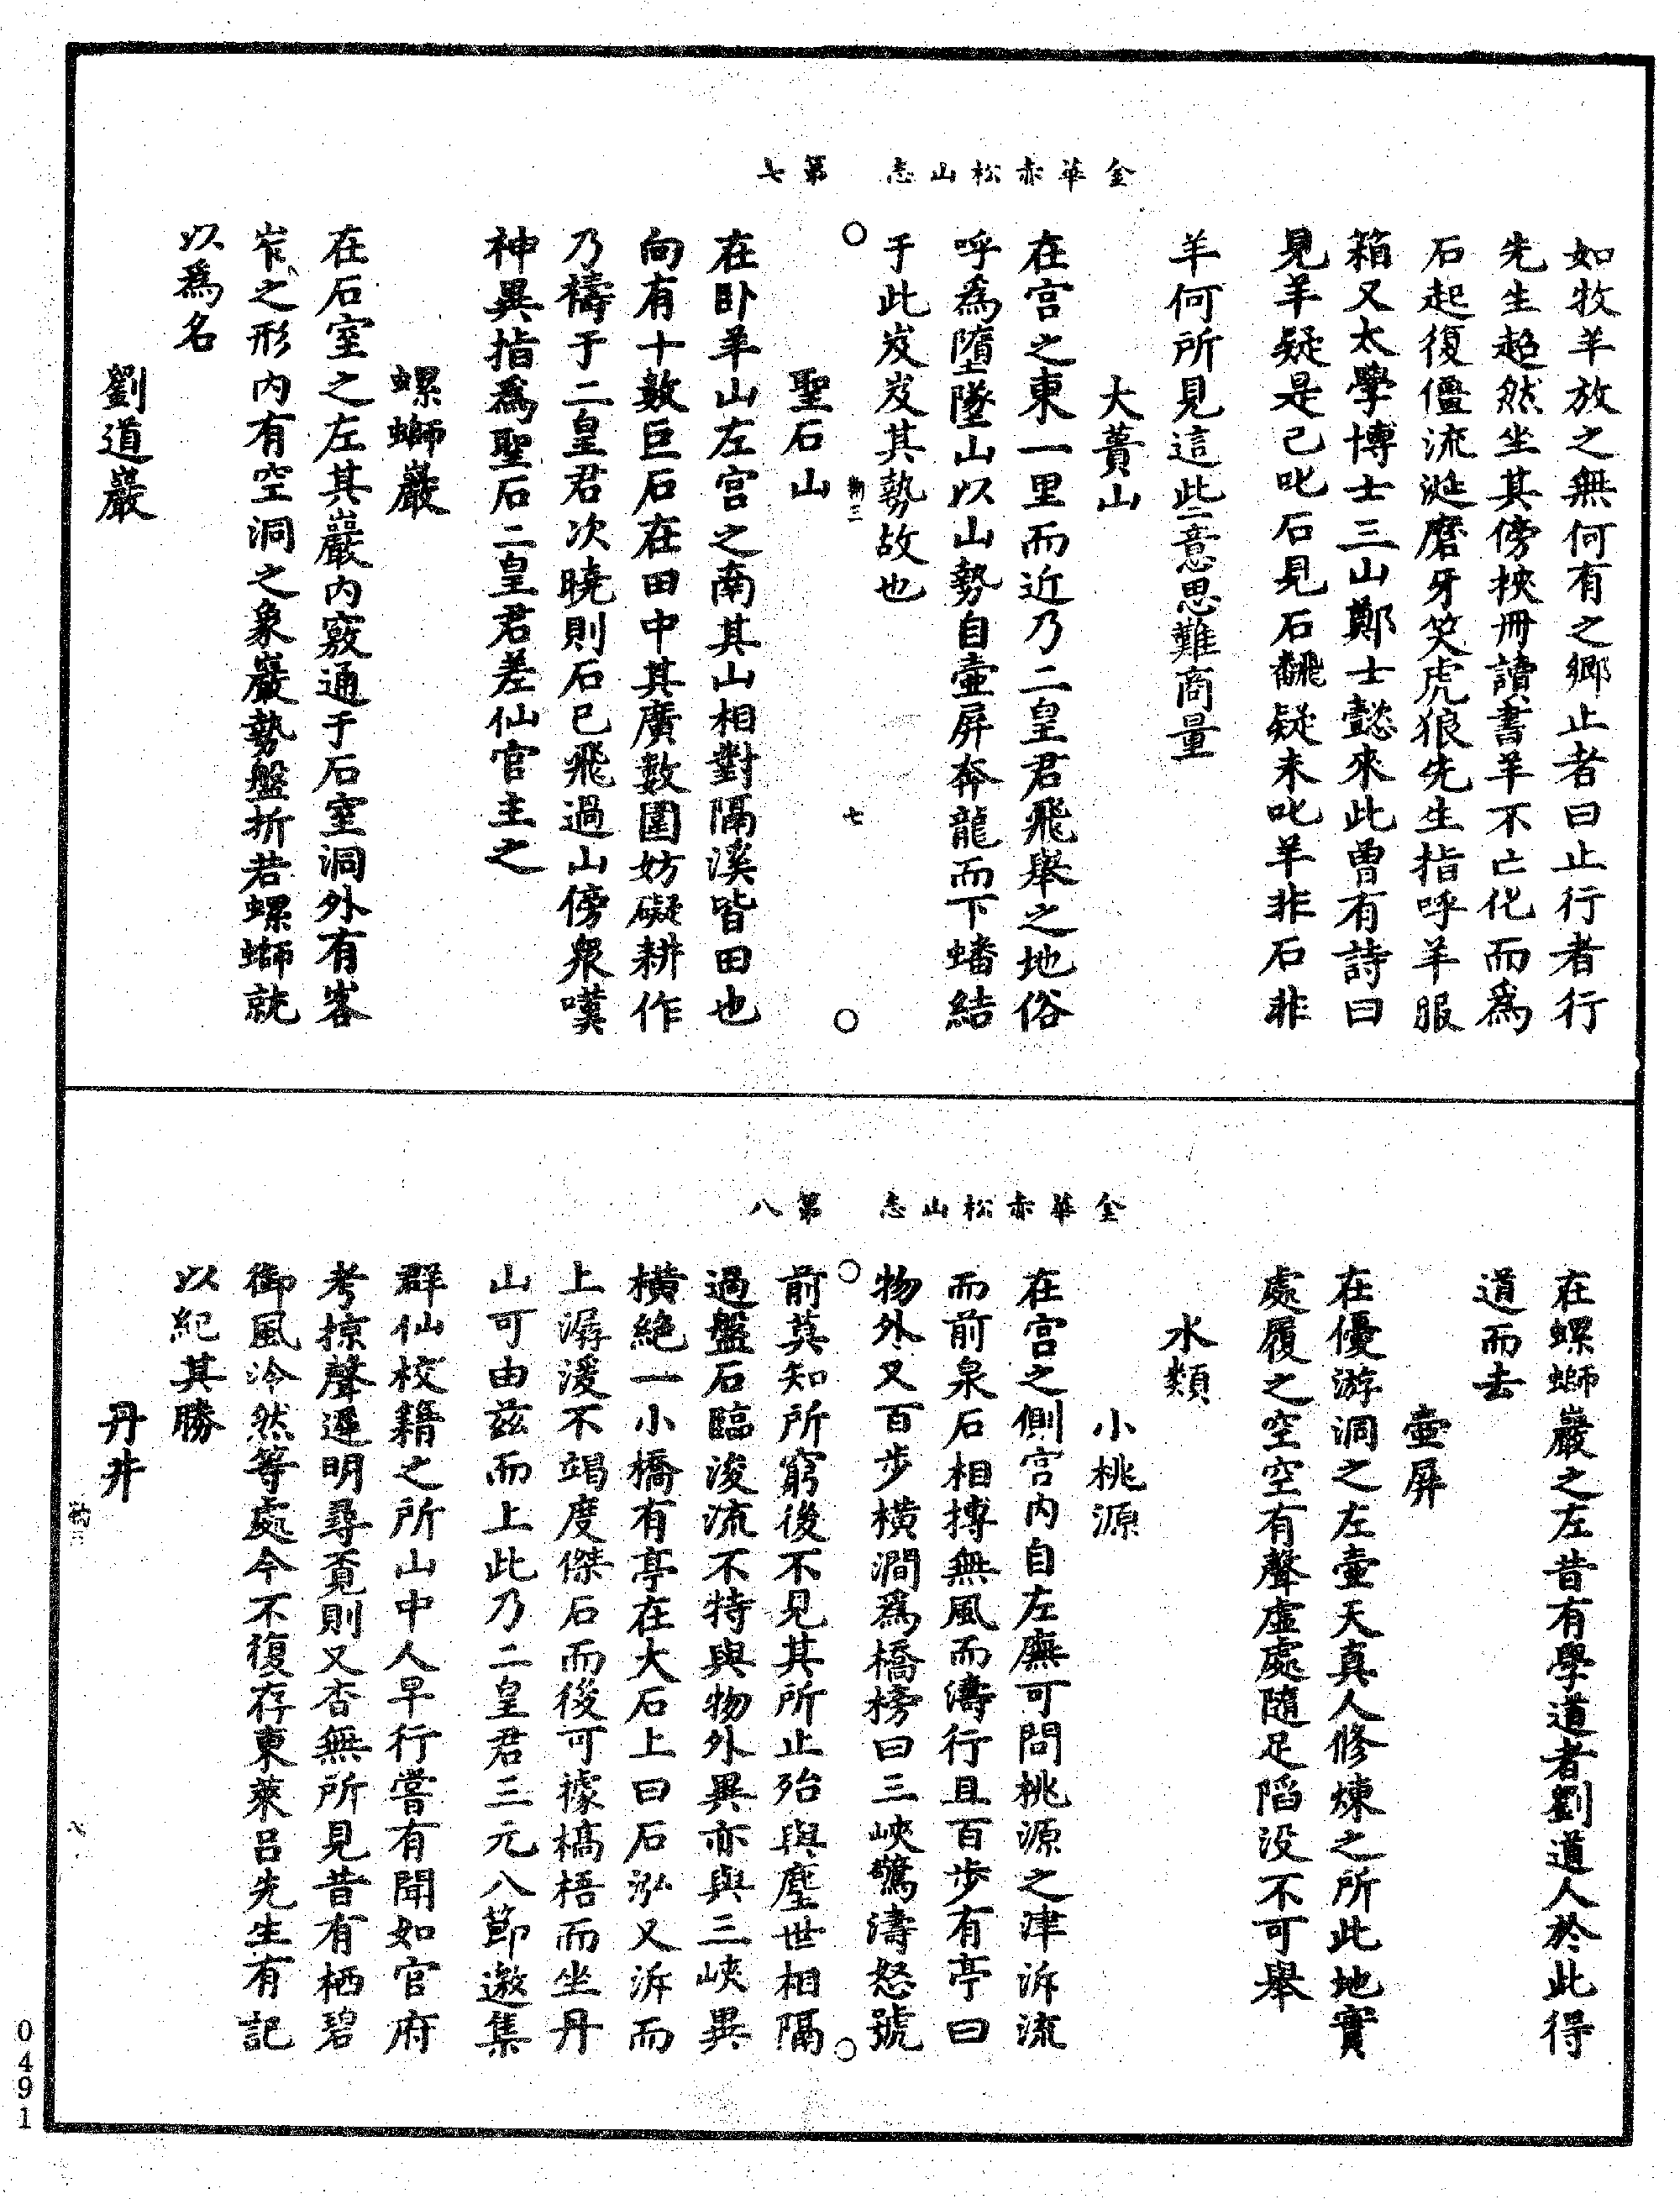 金華赤松山志　第七
如牧羊放之無何有之鄉止者曰止行者行
先生超然坐其傍挾冊讀書羊不亡化而為
石起復僵流涎磨牙笑虎狼先生指呼羊服
箱又太學博士三山鄭士懿來此曾有詩曰
見羊疑是已叱石見石翻疑未叱羊非石非
羊何所見這些意思難商量
大蕢山
在宮之東一里而近乃二皇君飛舉之地俗
呼為墮墜山以山勢自壺屏奔龍而下蟠結
于此岌岌其勢故也
七
聖石山
在卧羊山左宮之南其山相對隔溪皆田也
向有十數巨石在田中其廣數圍妨礙耕作
乃禱于二皇君次曉則石已飛過山傍衆嘆
神異指為聖石二皇君差仙官主之
螺螄巖
在石室之左其巖內竅通于石室洞外有峉
岝之形內有空洞之象巖勢盤折若螺螄就
以為名
劉道巖
金華赤松山志　第八
在螺螄巖之左昔有學道者劉道人於此得
道而去
壺屏
在優游洞之左壺天真人修煉之所此地實
處履之空空有聲虛處隨足陷没不可舉
水類
小桃源
在宮之側宮內自左廡可問桃源之津泝流
而前泉石相搏無風而濤行且百步有亭曰
物外又百步橫澗為橋榜曰三峽驚濤怒號
前莫知所窮後不見其所止殆與塵世相隔
過盤石臨浚流不特與物外異亦與三峽異
橫絶一小橋有亭在大石上曰石泓又泝而
上潺湲不竭度傑石而後可據槁梧而坐丹
山可由兹而上此乃二皇君三元八節邀集
群仙校籍之所山中人早行嘗有聞如官府
考掠聲遲明尋覓則又杳無所見昔有栖碧
御風泠然等處今不復存東萊呂先生有記
以紀其勝
丹井
八
0491